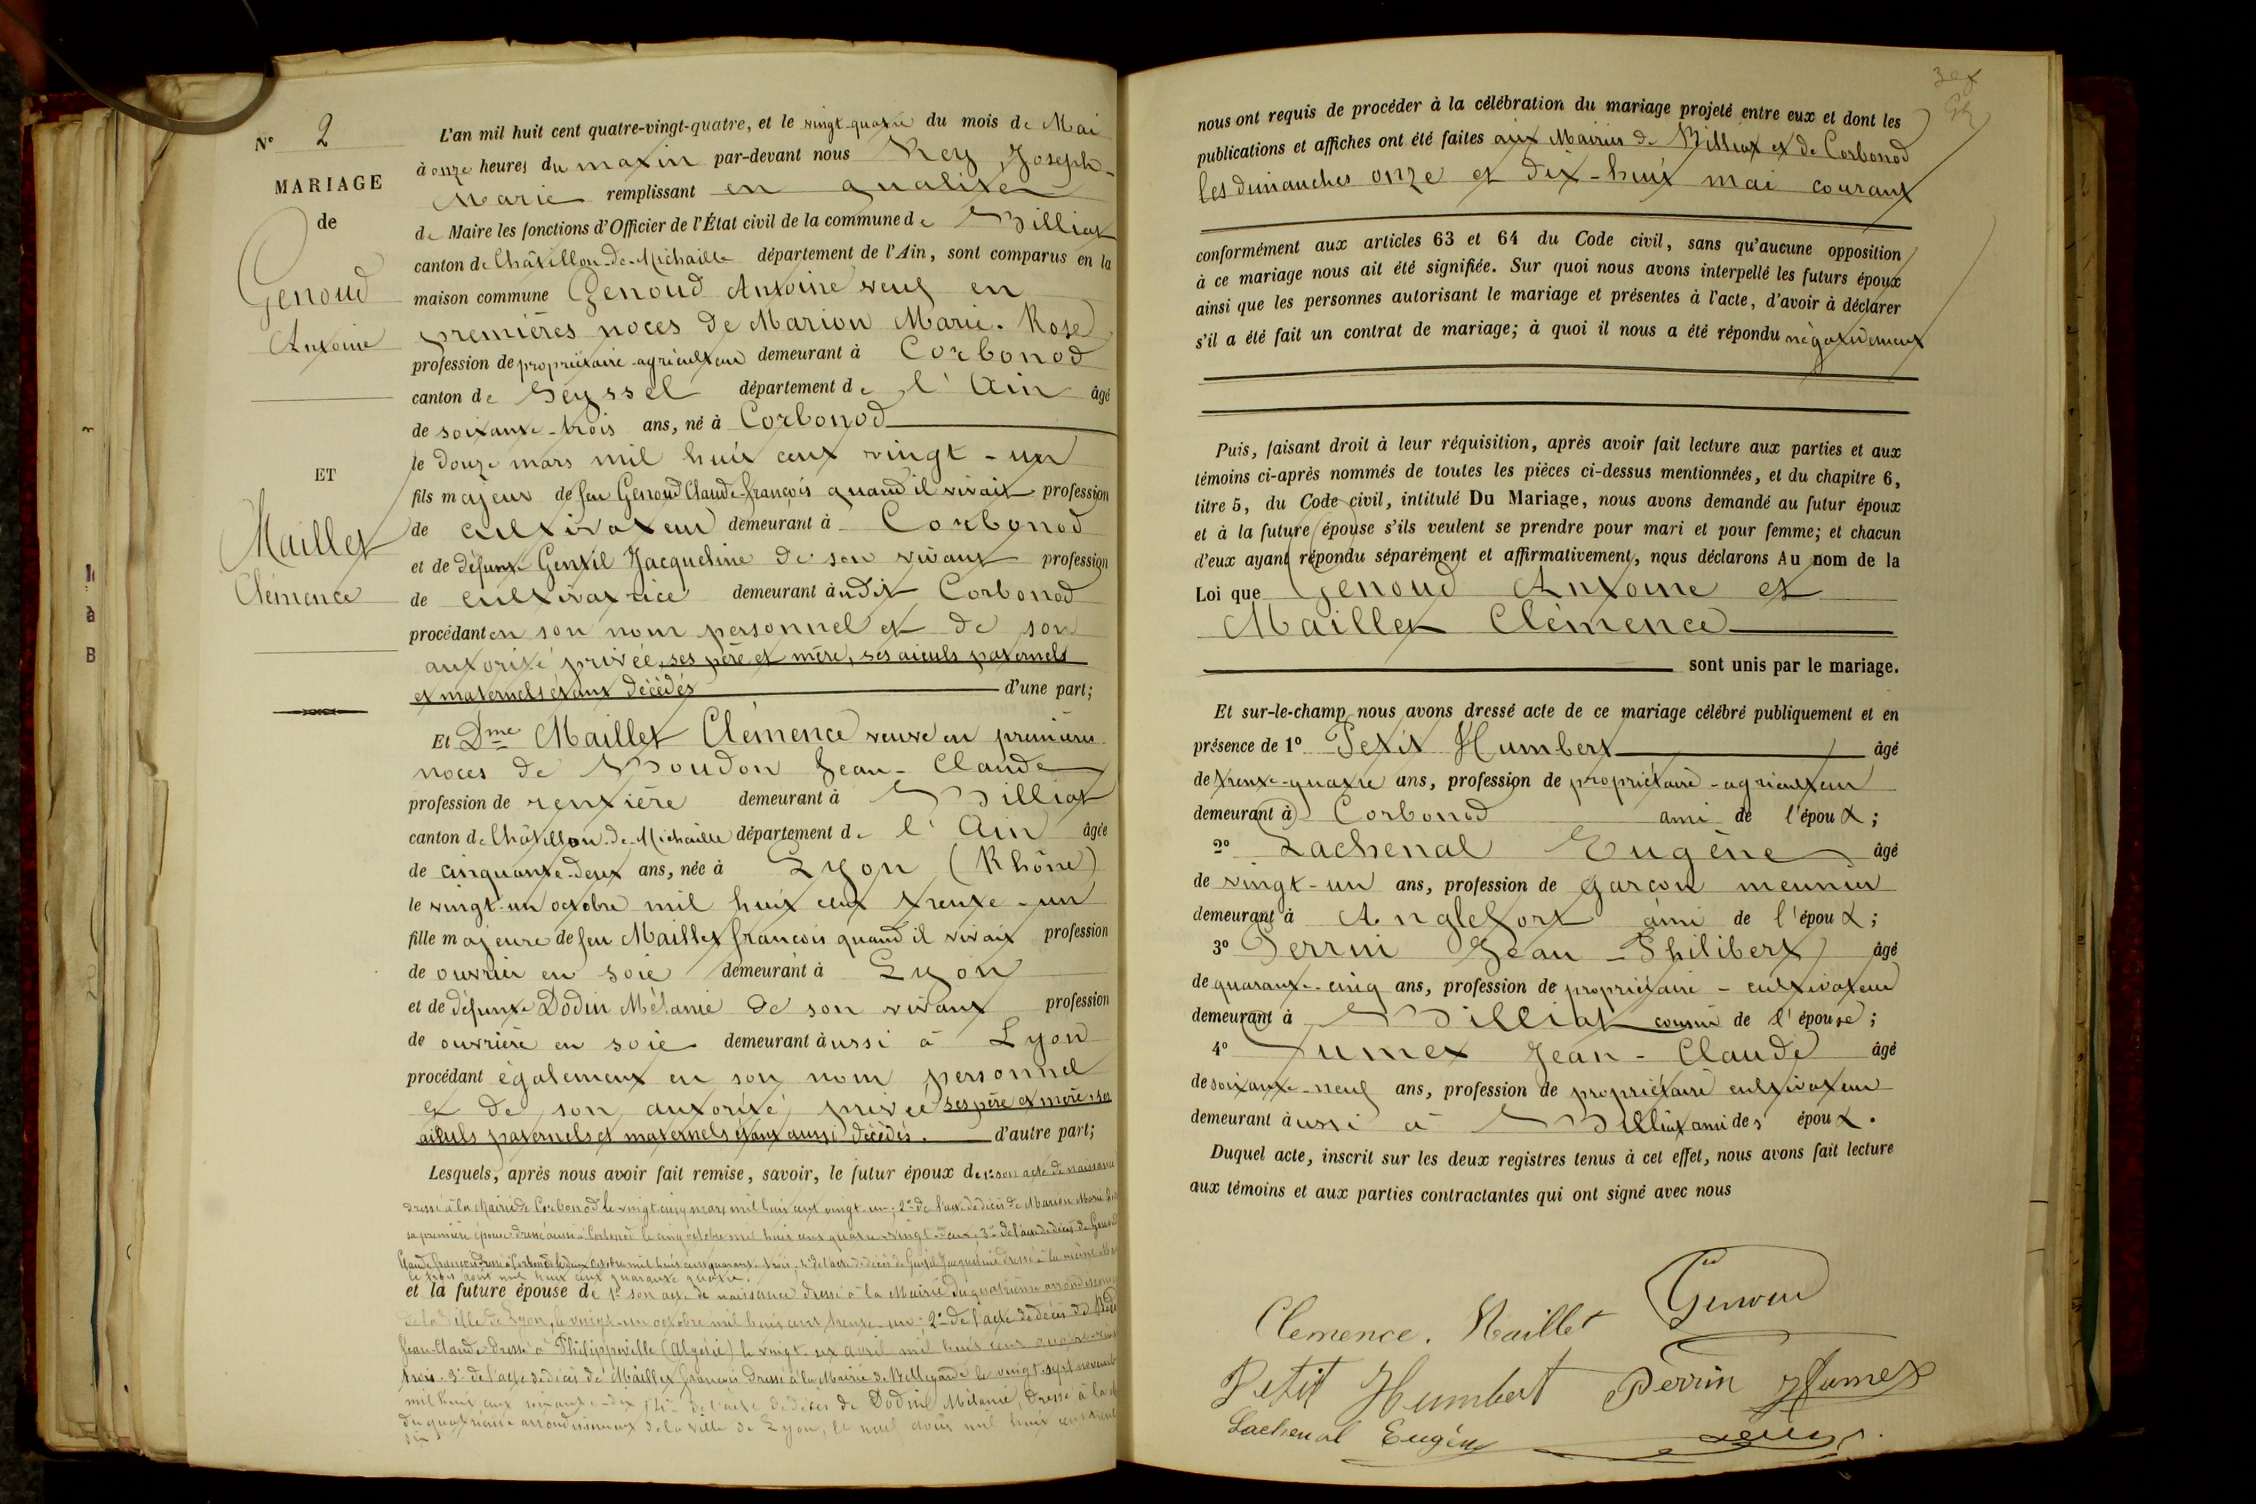 N° 2
MARIAGE
de
Genoud
Antoine
ET
Maillet
Clémence
L'an mil huit cent quatre-vingt-quatre, et le vingt-quatre du mois de Mai
à onze heures du matin par-devant nous Rey Joseph-
Marie remplissant en qualité
de Maire les fonctions d'Officier de l'État civil de la commune de Billiat
canton de Châtillon-de-Michaille département de l'Ain, sont comparus en la
maison commune Genoud Antoine veuf en
premières noces de Marion Marie-Rose
profession de propriétaire-agriculteur demeurant à Corbonod
canton de Seyssel département de l'Ain âgé
de soixante-trois ans, né à Corbonod
le douze mars mil huit cent vingt-un
fils majeur de feu Genoud Claude-françois quand il vivait profession
de cultivateur demeurant à Corbonod
et de défunte Gentil Jacqueline de son vivant profession
de cultivatrice demeurant àudit Corbonod
procédant en son nom personnel et de son
autorité privée, ses père et mère, ses aïeuls paternels
et maternels étant décédés d'une part;
Et Dme Maillet Clémence veuve en premières
noces de Boudon Jean-Claude
profession de rentière demeurant à Billiat
canton de Châtillon-de-Michaille département de l'Ain âgée
de cinquante-deux ans, née à Lyon (Rhône)
le vingt-un octobre mil huit cent trente-un
fille majeure de feu Maillet françois quand il vivait profession
de ouvrier en soie demeurant à Lyon
et de défunte Dodin Mélanie de son vivant profession
de ouvrière en soie demeurant àussi à Lyon
procédant également en son nom personnel
et de son autorité privée ses père et mère, ses
aïeuls paternels et maternels étant aussi décédés. d'autre part;
Lesquels, après nous avoir fait remise, savoir, le futur époux de 1° son acte de naissance
dressé à la Mairie de Corbonod le vingt cinq mars mil huit cent vingt-un; 2° de l'acte de décès de Marion Marie
sa première épouse dressé aussi à Corbonod le cinq octobre mil huit cent quatre-vingt-deux; 3° de l'acte de décès de Genoud
Claude françois dressé à Corbonod le deux octobre mil huit cent quarante-trois, 4° de l'acte de décès de Gentil Jacqueline dressé à la même
le trois août mil huit cent quarante quatre.
et la future épouse de 1° son acte de naissance dressé à la Mairie du quatrième arrondissement
de la ville de Lyon, le vingt-un octobre mil huit cent trente-un; 2° de l'acte de décès de
Jean-Claude dressé à Philippeville (Algérie) le vingt-six avril mil huit cent quatre-vingt
trois. 3° de l'acte de décès de Maillet françois dressé à la Mairie de Bellegarde le vingt-sept novembre
mil huit cent soixante-dix; 4° de l'acte de décès de Dodin Mélanie, dressé à la
du quatrième arrondissement de la ville de Lyon, le neuf août mil huit cent
six
nous ont requis de procéder à la célébration du mariage projeté entre eux et dont les
publications et affiches ont été faites aux Mairies de Billiat et de Corbonod
les dimanches onze et dix-huit mai courant
conformément aux articles 63 et 64 du Code civil, sans qu'aucune opposition
à ce mariage nous ait été signifiée. Sur quoi nous avons interpellé les futurs époux
ainsi que les personnes autorisant le mariage et présentes à l'acte, d'avoir à déclarer
s'il a été fait un contrat de mariage; à quoi il nous a été répondu négativement
Puis, faisant droit à leur réquisition, après avoir fait lecture aux parties et aux
témoins ci-après nommés de toutes les pièces ci-dessus mentionnées, et du chapitre 6,
titre 5, du Code civil, intitulé Du Mariage, nous avons demandé au futur époux
et à la future épouse s'ils veulent se prendre pour mari et pour femme; et chacun
d'eux ayant répondu séparément et affirmativement, nous déclarons Au nom de la
Loi que Genoud Antoine et
Maillet Clémence
sont unis par le mariage.
Et sur-le-champ nous avons dressé acte de ce mariage célébré publiquement et en
présence de 1° Petit Humbert âgé
de trente-quatre ans, profession de propriétaire-agriculteur
demeurant à Corbonod ami de l'époux;
2° Lachenal Eugène âgé
de vingt-un ans, profession de garçon meunier
demeurant à Anglefort ami de l'époux;
3° Perrin Jean-Philibert âgé
de quarante-cinq ans, profession de propriétaire-cultivateur
demeurant à Billiat cousin de l'épouse;
4° Humet Jean-Claude âgé
de soixante-neuf ans, profession de propriétaire cultivateur
demeurant àussi à Billiat ami des époux.
Duquel acte, inscrit sur les deux registres tenus à cet effet, nous avons fait lecture
aux témoins et aux parties contractantes qui ont signé avec nous
Clemence. Maillet
Petit Humbert Perrin Humet
Lachenal Eugène